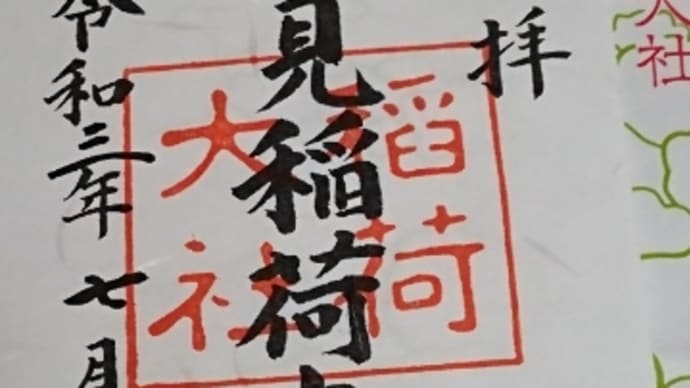 社
拝
見稲荷
稲荷
大社
令和三年七月